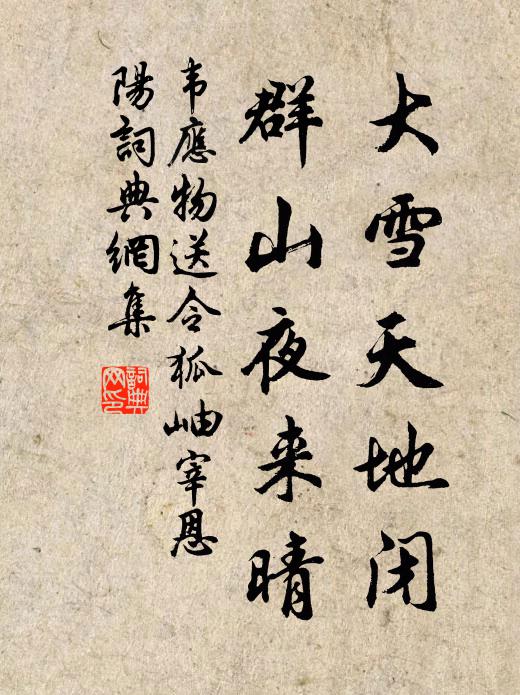 大雪天地闭
群山夜来晴
韦應物送令狐岫宰恩
陽詞典網集
詞典
网印